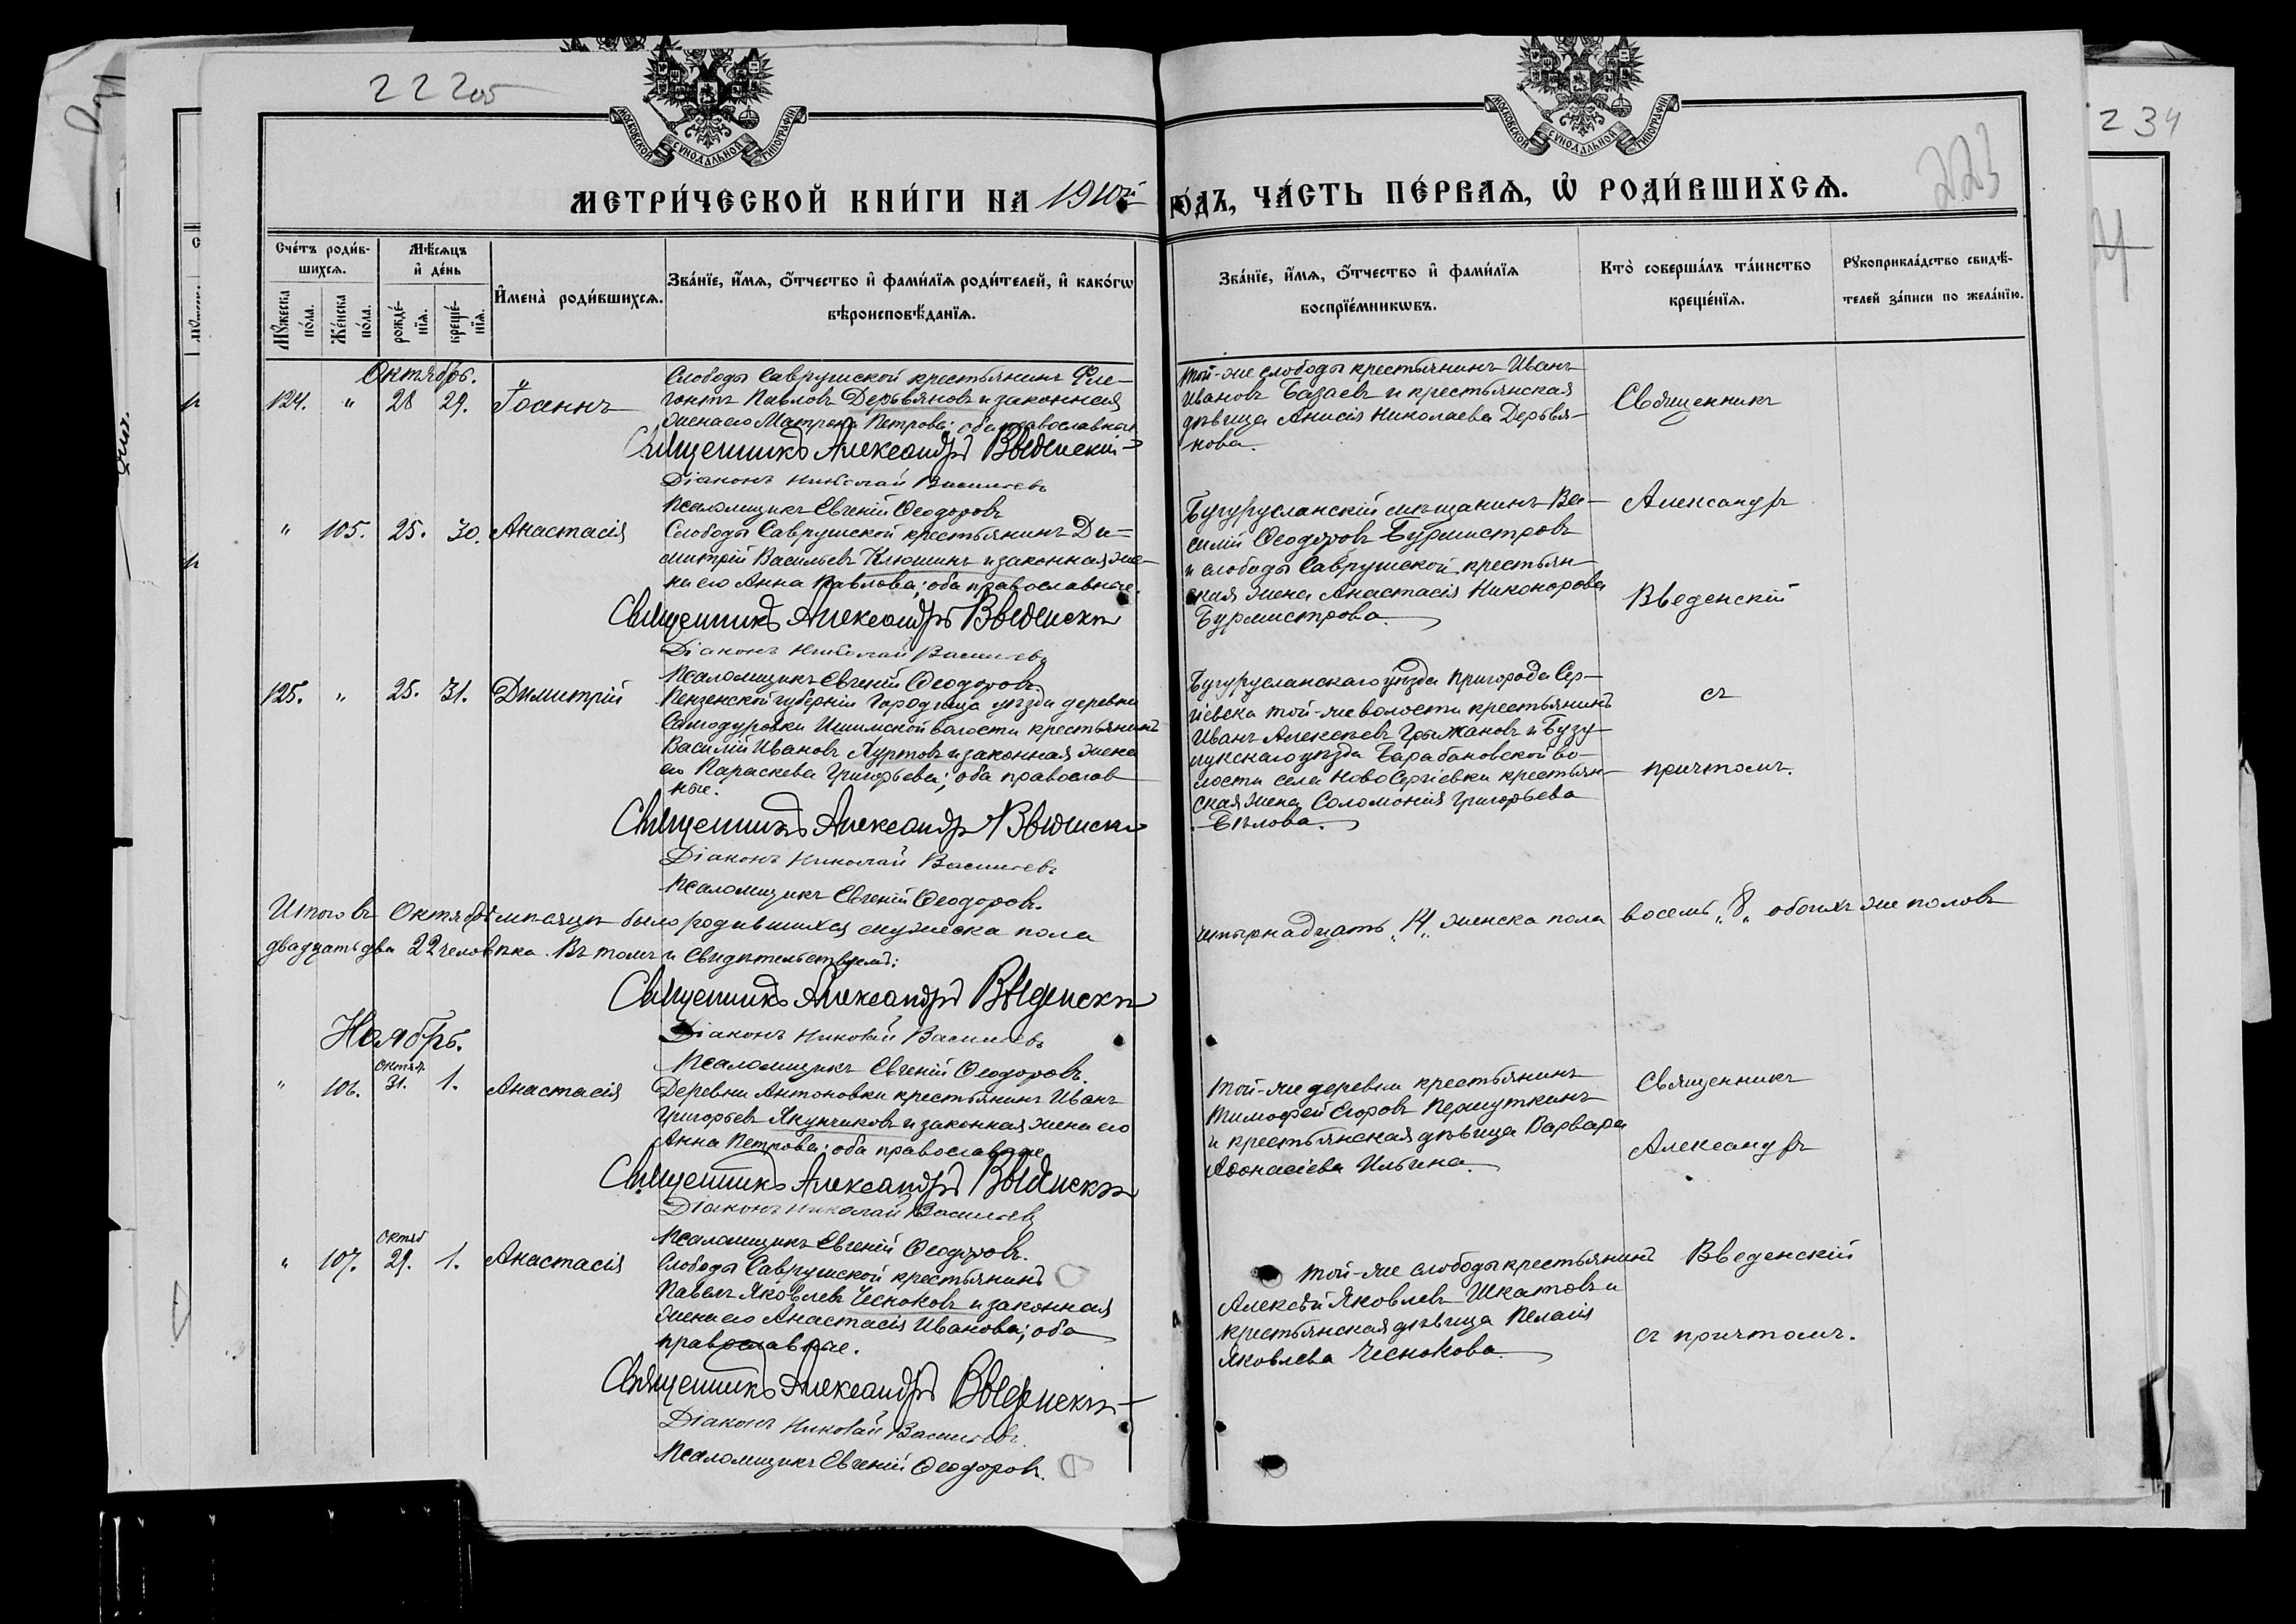 222об
223
234
МОСКОВСКОЙ СѴНОДАЛЬНОЙ ТИПОГРАФІИ
МОСКОВСКОЙ СѴНОДАЛЬНОЙ ТИПОГРАФІИ
МЕТРИ́ЧЕСКОЙ КНИ́ГИ НА 1910й
ГО́ДЪ, ЧА́СТЬ ПЕ́РВАЯ, Ѡ РОДИ́ВШИХСЯ.
Сче́тъ роди́в-
шихся.
Му́жеска по́ла.
Же́нска по́ла.
Мѣ́сяцъ
и де́нь
рожде́-
нія.
креще́-
нія.
Имена̀ роди́вшихся.
Зва́ніе, и́мя, о́тчество и фами́лія роди́телей, и како́гѡ
вѣроисповѣ́данія.
Зва́ніе, и́мя, о́тчество и фами́лія
воспріе́мникѡвъ.
Кто̀ соверша́лъ та́инство
креще́нія.
Рукоприкла́дство свидѣ́-
телей за́писи по жела́нію.
Октябрь.
124. " 28 29. Іоаннъ
Слободы Саврушской крестьянинъ Фле-
гонтъ Павловъ Деревяновъ и законная
жена его Матрона Петрова; оба православные
Священникъ Александръ Введенскій
Діаконъ Николай Васильевъ
Псаломщикъ Евгеній Ѳеодоровъ
Той-же слободы крестьянинъ Иванъ
Ивановъ Базаевъ и крестьянская
дѣвица Анисія Николаева Деревя-
нова.
Священникъ
Александръ
Введенскій
съ
причтомъ.
" 105. 25. 30. Анастасія
Слободы Саврушской крестьянинъ Ди-
митрій Васильевъ Клюшинъ и законная же-
на его Анна Павлова; оба православные.
Священникъ Александръ Введенскій
Діаконъ Николай Васильевъ
Псаломщикъ Евгеній Ѳеодоровъ
Бугурусланскій мѣщанинъ Ва-
силій Ѳеодоровъ Бурмистровъ
и слободы Саврушской крестьян-
ская жена Анастасія Никонорова
Бурмистрова.
125. " 25. 31. Димитрій
Пензенской губерніи Городища уѣзда деревни
Самодуровки Ишимской волости крестьянинъ
Василій Ивановъ Луртовъ и законная жена
его Параскева Григорьева; оба православ
ные.
Священникъ Александръ Введенскій
Діаконъ Николай Васильевъ
Псаломщикъ Евгеній Ѳеодоровъ.
Бугурусланскаго уѣзда пригорода Сер-
гіевска той-же волости крестьянинъ
Иванъ Алексѣевъ Грыжановъ и Бузу-
лукскаго уѣзда Барабановской во-
лости села Ново Сергіевки крестьян-
ская жена Соломонія Григорьева
Бѣлова.
Итого въ Октябрѣ мѣсяцѣ было родившихся мужеска пола
четырнадцать „14„ женска пола восемь „8„ обоихъ же половъ
двадцать два 22 человѣка. Въ томъ и свидѣтельствуемъ:
Священникъ Александръ Введенскій
Діаконъ Николай Васильевъ
Псаломщикъ Евгеній Ѳеодоровъ.
Ноябрь.
" 106. Октяб. 31. 1. Анастасія
Деревни Антоновки крестьянинъ Иванъ
Григорьевъ Якунчиковъ и законная жена его
Анна Петрова; оба православные
Священникъ Александръ Введенскій
Діаконъ Николай Васильевъ
Псаломщикъ Евгеній Ѳеодоровъ.
Той-же деревни крестьянинъ
Тимофей Егоровъ Першуткинъ
и крестьянская дѣвица Варвара
Аѳонасіева Ильина.
Священникъ
Александръ
Введенскій
съ причтомъ.
" 107. Октяб 29. 1. Анастасія
Слободы Саврушской крестьянинъ
Павелъ Яковлевъ Чесноковъ и законная
жена его Анастасія Иванова; оба
православные.
Священникъ Александръ Введенскій
Діаконъ Николай Васильевъ.
Псаломщикъ Евгеній Ѳеодоровъ.
Той-же слободы крестьянинъ
Алексѣй Яковлевъ Шкатовъ и
крестьянская дѣвица Пелагія
Яковлева Чеснокова.